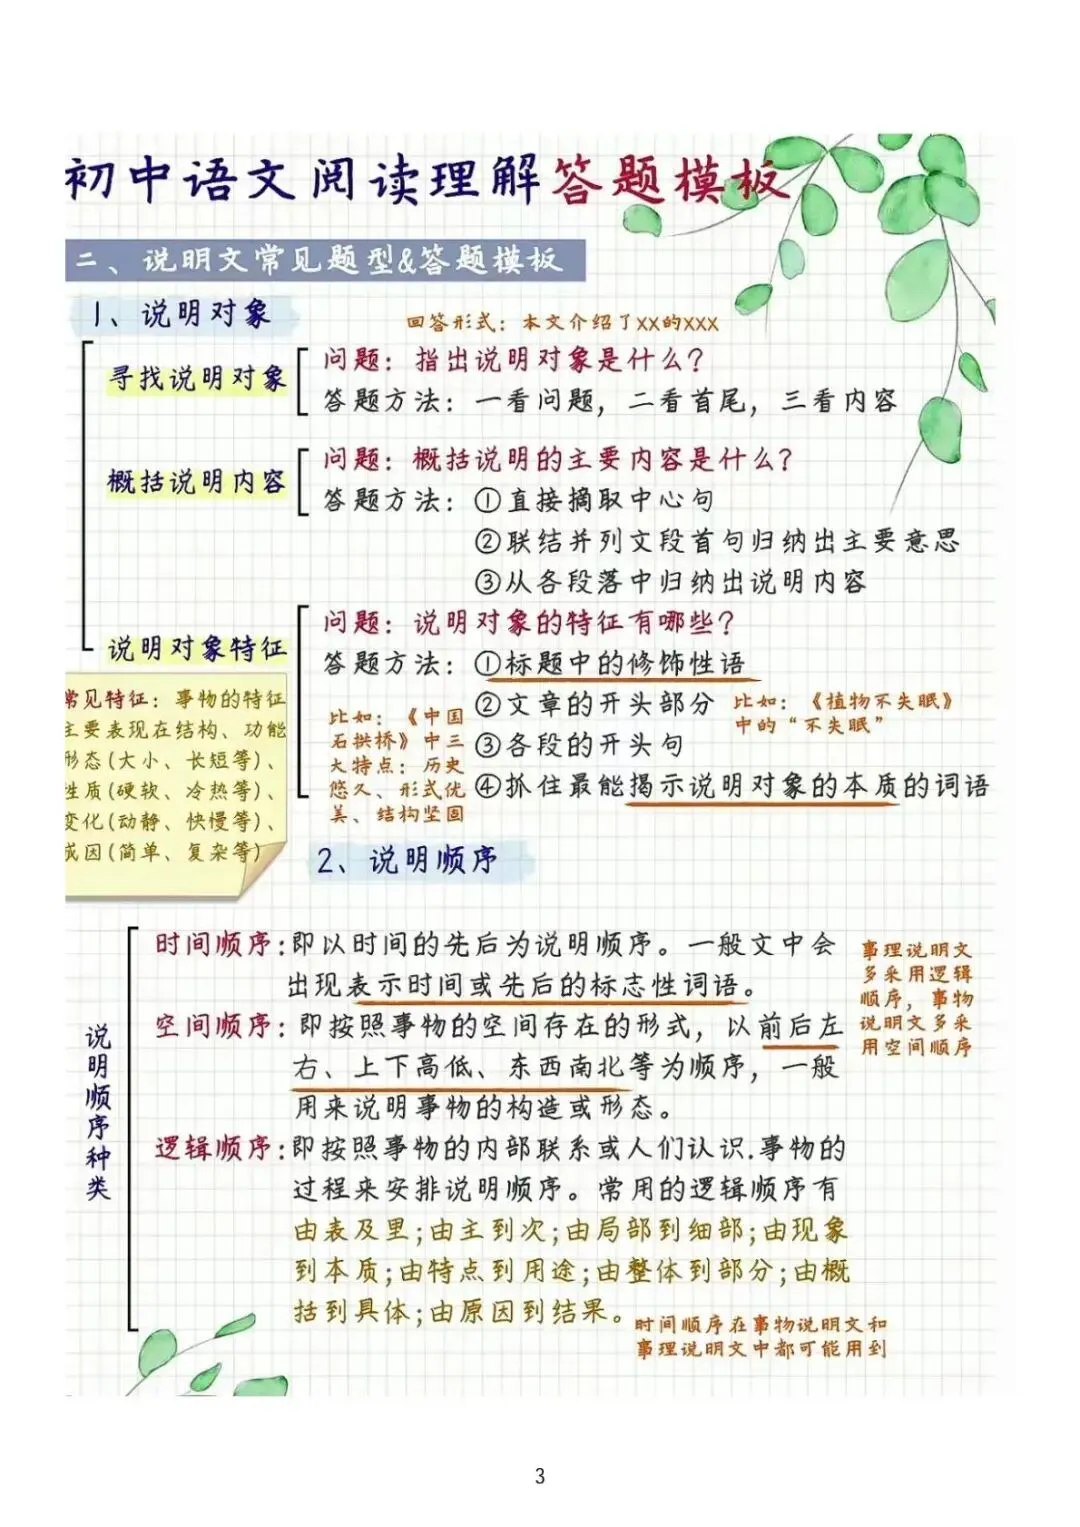 初中语文阅读理解答题模板
二、说明文常见题型&答题模板
1、说明对象
回答形式：本文介绍了XX的XXX
寻找说明对象
问题：指出说明对象是什么？
答题方法：一看问题，二看首尾，三看内容
概括说明内容
问题：概括说明的主要内容是什么？
答题方法：①直接摘取中心句
②联结并列文段首句归纳出主要意思
③从各段落中归纳出说明内容
说明对象特征
问题：说明对象的特征有哪些？
答题方法：①标题中的修饰性语
②文章的开头部分
比如：《植物不失眠》
中的“不失眠”
③各段的开头句
④抓住最能揭示说明对象的本质的词语
比如：《中国
石拱桥》中三
大特点：历史
悠久、形式优
美、结构坚固
常见特征：事物的特征
主要表现在结构、功能
形态(大小、长短等)、
性质(硬软、冷热等)、
变化(动静、快慢等)、
成因(简单、复杂等)
2、说明顺序
说明顺序种类
时间顺序:即以时间的先后为说明顺序。一般文中会
出现表示时间或先后的标志性词语。
空间顺序：即按照事物的空间存在的形式，以前后左
右、上下高低、东西南北等为顺序，一般
用来说明事物的构造或形态。
逻辑顺序:即按照事物的内部联系或人们认识.事物的
过程来安排说明顺序。常用的逻辑顺序有
由表及里;由主到次;由局部到细部;由现象
到本质;由特点到用途;由整体到部分;由概
括到具体;由原因到结果。
事理说明文
多采用逻辑
顺序，事物
说明文多采
用空间顺序
时间顺序在事物说明文和
事理说明文中都可能用到
3